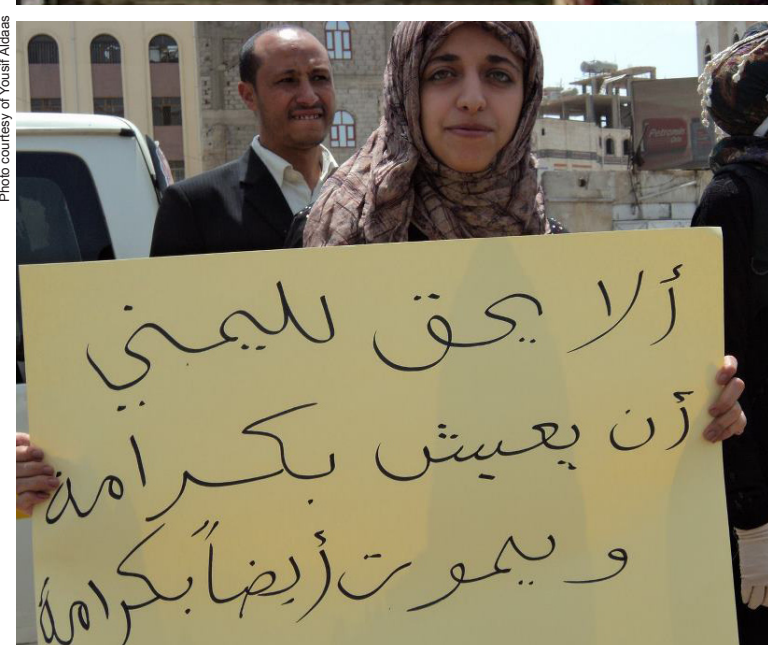 Photo courtesy of Yousif Aldaas
ألا يحق لليمني
أن يعيش بكرامة
و يموت أيضاً بكرامة